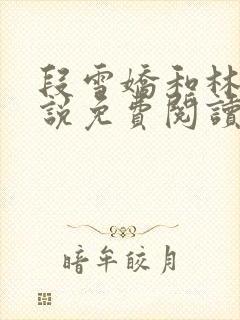 段雪嬌和林
說免費閱讀
暗牟皎月